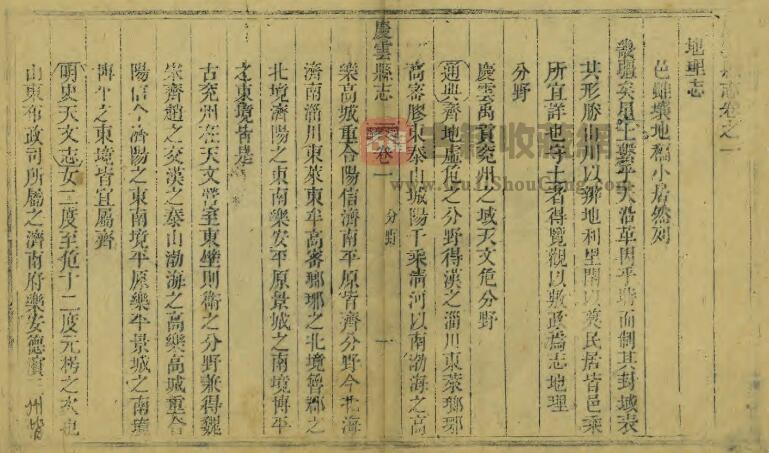 縣志卷之一
地理志
邑雖壤地褊小居然列
疆矣星土繫乎天沿革因乎時而制其封域表
其形勝山川以辨地利里閈以奠民居皆邑乘
所宜詳也守土者得覽觀以敷政焉志地理
分野
慶雲禹貢兗州之域天文危分野
通典齊地虛危之分野得漢之淄川東萊瑯琊
高密膠東泰山城陽千乘清河以南渤海之高
慶雲縣志 卷一 分野 一
樂高城重合陽信濟南平原皆齊分野今北海
濟南淄川東萊東牟高密瑯琊之北境魯郡之
北境濟陽之東南樂安平原景城之南境博平
之東境皆是
古兗州在天文營室東壁則衛之分野兼得魏
宋齊趙之交漢之泰山渤海之高樂高城重合
陽信今濟陽之東南境平原樂安景城之南境
博平之東境皆宜屬齊
明史天文志女二度至危十二度元枵之次也
山東布政司所屬之濟南府樂安德濱三州皆